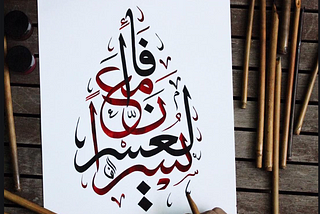 فإن مع العسر يسراً